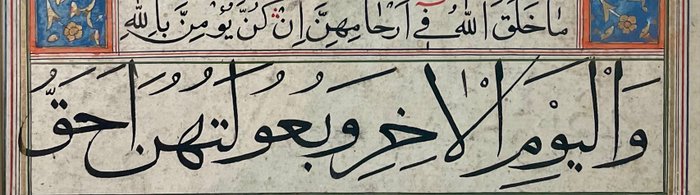 مَا خَلَقَ اللهُ فِي اَرْحَامِهِنَّ اِنْ كُنَّ يُؤْمِنَّ بِاللهِ
وَالْيَوْمِ الْاٰخِرِ وَبُعُولَتُهُنَّ اَحَقُّ